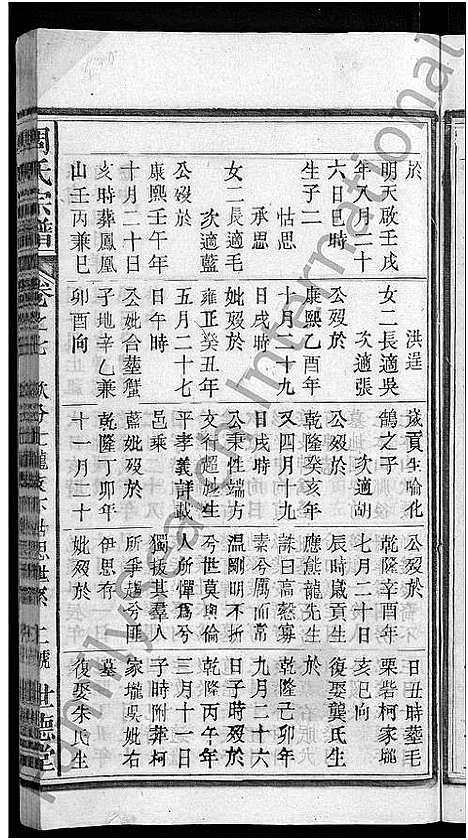 周氏宗譜
卷之七
世德堂
於
明天啟壬戌
年八月二十
六日巳時
生子二
怙思
承思
女二長適毛
次適藍
公歿於
康熙壬午年
十月二十日
亥時葬鳳凰
山壬丙兼巳
洪逞
女二長適吳
次適張
公歿於
康熙乙酉年
十月二十九
日戌時
妣歿於
雍正癸丑年
五月二十七
日午時
公妣合塟蟹
子地辛乙兼
卯酉向
歲貢生喻化
鵠之子
次適胡
公歿於
乾隆癸亥年
又四月十九
日戌時
公秉性端方
文行超施生
平孝義詳載
邑乘
藍妣歿於
乾隆丁卯年
十一月三十
公歿於
乾隆辛酉年
七月二十日
辰時歲貢生
應熊龍先生
誄曰高愨寡
素兮厲而常
溫剛明不折
兮世莫與倫
人所憚爲兮
獨拔其羣人
所爭趨兮匪
伊思存
妣歿於
日丑時塟毛
栗砦柯家壠
亥巳向
復娶龔氏生
於
乾隆己卯年
九月二十六
日子時歿於
乾隆丙午年
三月十一日
子時附葬柯
家壠吳妣右
墓
復娶朱氏生
familysearch International